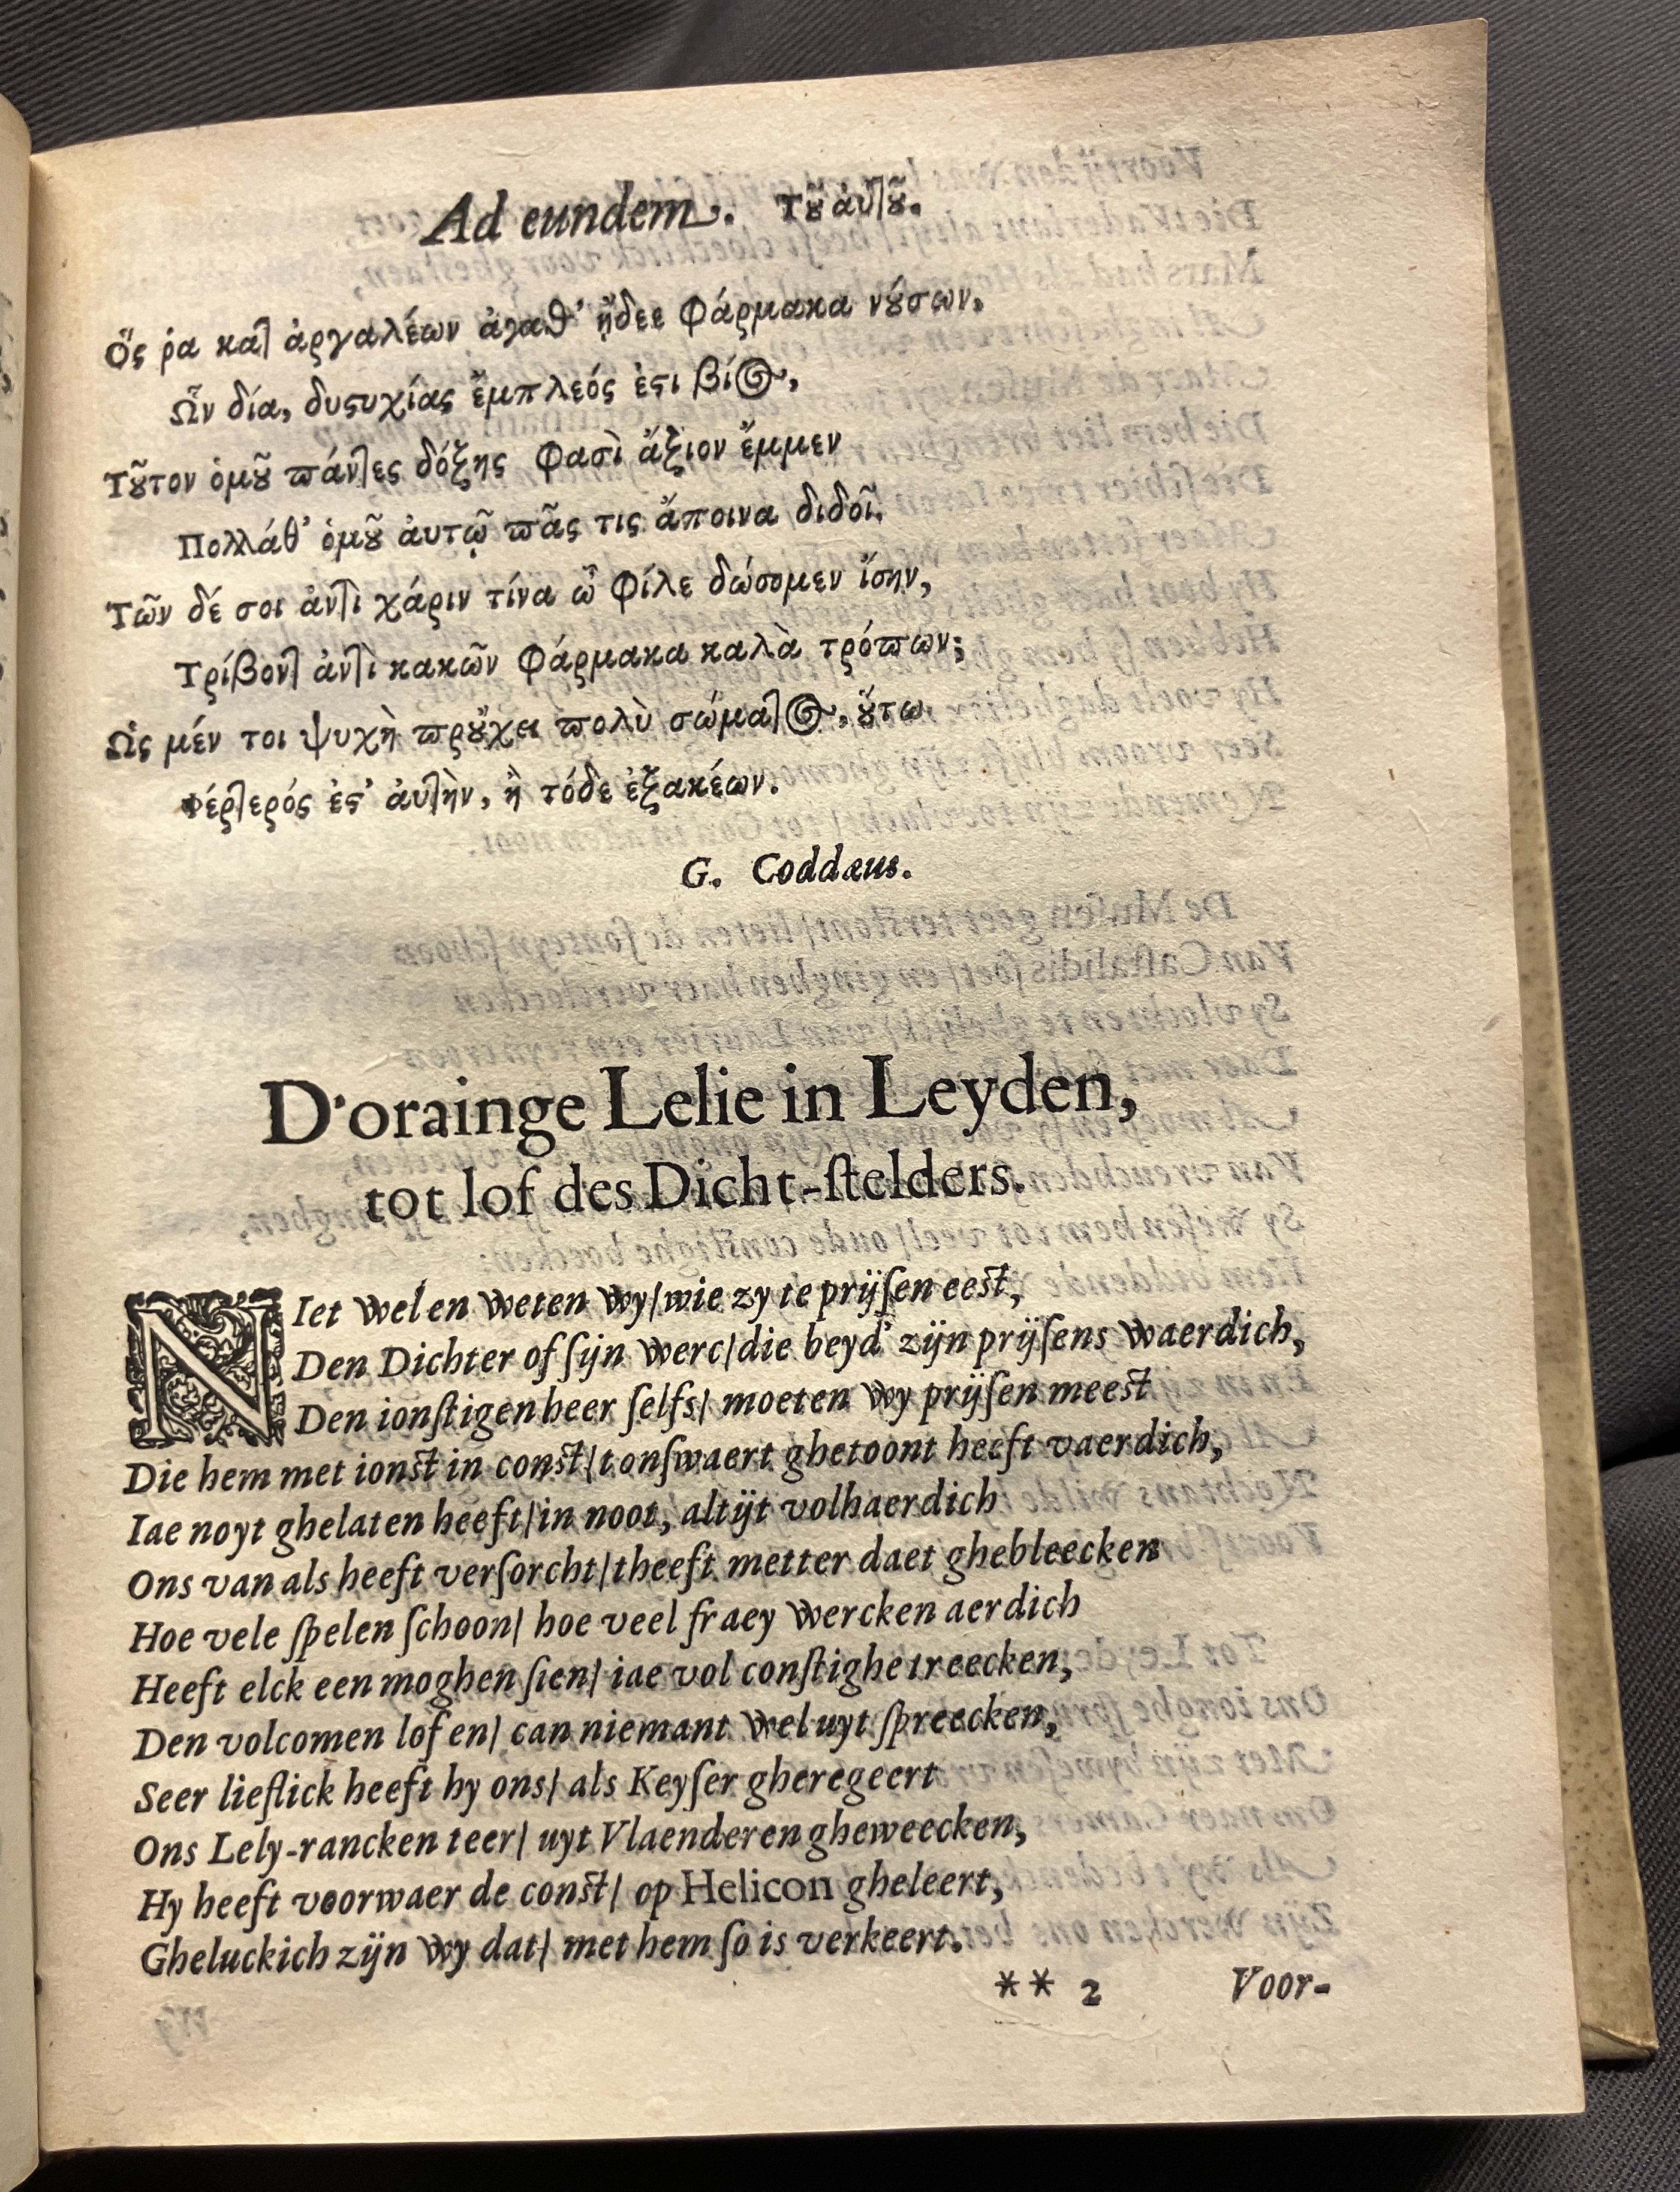 Ad eundem. Τȣ͂ ἀυτȣ͂.
Ὅς ῥα κατ ἀργαλέων ἀγαθ' ᾔδεε φάρμακα νȣ́σων,
Ὧν δία, δυςυχίας ἔμπλεός ἐςι βίος,
Τȣ͂τον ὁμȣ͂ πάντες δόξης φασὶ ἄξιον ἔμμεν
Πολλάθ' ὁμȣ͂ ἀυτῷ πᾶς τις ἄποινα διδοῖ.
Τῶν δέ σοι ἀντὶ χάριν τίνα ὦ φίλε δώσομεν ἴσην,
Τρίβοντ ἀντὶ κακῶν φάρμακα καλὰ τρόπων;
Ὡς μέν τοι ψυχὴ πρȣ́χει πολὺ σώματος, ȣ́τω
Φέρτερός ἐς' ἀυτὴν, ἢ τόδε ἐξακέων.
G. Coddæus.
D'orainge Lelie in Leyden,
tot lof des Dicht-ſtelders.
NIet wel en weten wy/wie zy te prijſen eeſt,
Den Dichter of ſijn werc/die beyd' zijn prijſens waerdich,
Den ionſtigen heer ſelfs/ moeten wy prijſen meeſt
Die hem met ionſt in conſt/tonſwaert ghetoont heeft vaerdich,
Iae noyt ghelaten heeft/in noot, altijt volhaerdich
Ons van als heeft verſorcht/theeft metter daet ghebleecken
Hoe vele ſpelen ſchoon/ hoe veel fraey wercken aerdich
Heeft elck een moghen ſien/ iae vol conſtighe treecken,
Den volcomen lof en/ can niemant wel uyt ſpreecken,
Seer lieflick heeft hy ons/ als Keyſer gheregeert
Ons Lely-rancken teer/ uyt Vlaenderen gheweecken,
Hy heeft voorwaer de conſt/ op Helicon gheleert,
Gheluckich zijn wy dat/ met hem ſo is verkeert.
** 2 Voor-